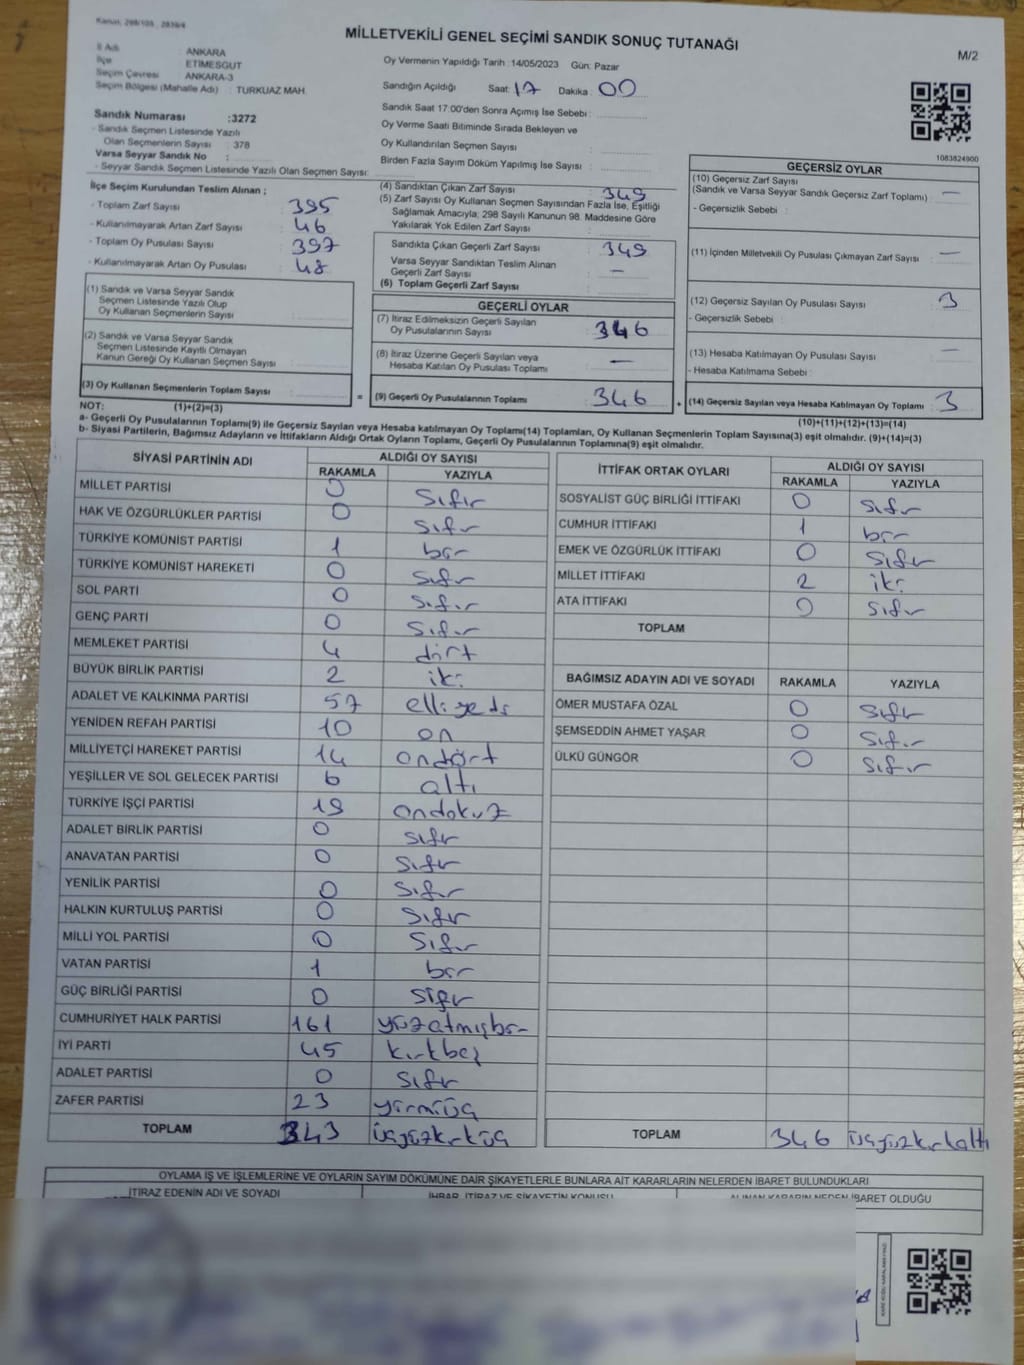 Kanun, 298/105 , 2839/4
MİLLETVEKİLİ GENEL SEÇİMİ SANDIK SONUÇ TUTANAĞI
M/2
İl Adı : ANKARA
İlçe : ETİMESGUT
Seçim Çevresi : ANKARA-3
Seçim Bölgesi (Mahalle Adı) : TURKUAZ MAH.
Sandık Numarası :3272
- Sandık Seçmen Listesinde Yazılı
Olan Seçmenlerin Sayısı : 378
Varsa Seyyar Sandık No :
- Seyyar Sandık Seçmen Listesinde Yazılı Olan Seçmen Sayısı:
Oy Vermenin Yapıldığı Tarih : 14/05/2023 Gün: Pazar
Sandığın Açıldığı Saat: 17 Dakika : 00
Sandık Saat 17:00'den Sonra Açımış İse Sebebi :
Oy Verme Saati Bitiminde Sırada Bekleyen ve
Oy Kullandırılan Seçmen Sayısı :
Birden Fazla Sayım Döküm Yapılmış İse Sayısı :
1083824900
İlçe Seçim Kurulundan Teslim Alınan ;
- Toplam Zarf Sayısı : 395
- Kullanılmayarak Artan Zarf Sayısı : 46
- Toplam Oy Pusulası Sayısı : 397
- Kullanılmayarak Artan Oy Pusulası : 48
(1) Sandık ve Varsa Seyyar Sandık
Seçmen Listesinde Yazılı Olup
Oy Kullanan Seçmenlerin Sayısı :
(2) Sandık ve Varsa Seyyar Sandık
Seçmen Listesinde Kayıtlı Olmayan
Kanun Gereği Oy Kullanan Seçmen Sayısı :
(3) Oy Kullanan Seçmenlerin Toplam Sayısı :
(1)+(2)=(3)
(4) Sandıktan Çıkan Zarf Sayısı : 349
(5) Zarf Sayısı Oy Kullanan Seçmen Sayısından Fazla İse, Eşitliği
Sağlamak Amacıyla; 298 Sayılı Kanunun 98. Maddesine Göre
Yakılarak Yok Edilen Zarf Sayısı :
Sandıkta Çıkan Geçerli Zarf Sayısı : 349
Varsa Seyyar Sandıktan Teslim Alınan
Geçerli Zarf Sayısı : -
(6) Toplam Geçerli Zarf Sayısı :
GEÇERLİ OYLAR
(7) İtiraz Edilmeksizin Geçerli Sayılan
Oy Pusulalarının Sayısı : 346
(8) İtiraz Üzerine Geçerli Sayılan veya
Hesaba Katılan Oy Pusulası Toplamı : -
= (9) Geçerli Oy Pusulalarının Toplamı : 346
GEÇERSİZ OYLAR
(10) Geçersiz Zarf Sayısı
(Sandık ve Varsa Seyyar Sandık Geçersiz Zarf Toplamı) : -
- Geçersizlik Sebebi :
(11) İçinden Milletvekili Oy Pusulası Çıkmayan Zarf Sayısı : -
(12) Geçersiz Sayılan Oy Pusulası Sayısı : 3
- Geçersizlik Sebebi :
(13) Hesaba Katılmayan Oy Pusulası Sayısı : -
- Hesaba Katılmama Sebebi :
+ (14) Geçersiz Sayılan veya Hesaba Katılmayan Oy Toplamı : 3
(10)+(11)+(12)+(13)=(14)
NOT:
a- Geçerli Oy Pusulalarının Toplamı(9) ile Geçersiz Sayılan veya Hesaba katılmayan Oy Toplamı(14) Toplamları, Oy Kullanan Seçmenlerin Toplam Sayısına(3) eşit olmalıdır. (9)+(14)=(3)
b- Siyasi Partilerin, Bağımsız Adayların ve İttifakların Aldığı Ortak Oyların Toplamı, Geçerli Oy Pusulalarının Toplamına(9) eşit olmalıdır.
SİYASİ PARTİNİN ADI ALDIĞI OY SAYISI
RAKAMLA YAZIYLA
MİLLET PARTİSİ 0 sıfır
HAK VE ÖZGÜRLÜKLER PARTİSİ 0 sıfır
TÜRKİYE KOMÜNİST PARTİSİ 1 bir
TÜRKİYE KOMÜNİST HAREKETİ 0 sıfır
SOL PARTİ 0 sıfır
GENÇ PARTİ 0 sıfır
MEMLEKET PARTİSİ 4 dört
BÜYÜK BİRLİK PARTİSİ 2 iki
ADALET VE KALKINMA PARTİSİ 57 elliyedi
YENİDEN REFAH PARTİSİ 10 on
MİLLİYETÇİ HAREKET PARTİSİ 14 ondört
YEŞİLLER VE SOL GELECEK PARTİSİ 6 altı
TÜRKİYE İŞÇİ PARTİSİ 19 ondokuz
ADALET BİRLİK PARTİSİ 0 sıfır
ANAVATAN PARTİSİ 0 sıfır
YENİLİK PARTİSİ 0 sıfır
HALKIN KURTULUŞ PARTİSİ 0 sıfır
MİLLİ YOL PARTİSİ 0 sıfır
VATAN PARTİSİ 1 bir
GÜÇ BİRLİĞİ PARTİSİ 0 sıfır
CUMHURİYET HALK PARTİSİ 161 yüzatmışbir
İYİ PARTİ 45 kırkbeş
ADALET PARTİSİ 0 sıfır
ZAFER PARTİSİ 23 yirmiüç
TOPLAM 343 üçyüzkırküç
İTTİFAK ORTAK OYLARI ALDIĞI OY SAYISI
RAKAMLA YAZIYLA
SOSYALİST GÜÇ BİRLİĞİ İTTİFAKI 0 sıfır
CUMHUR İTTİFAKI 1 bir
EMEK VE ÖZGÜRLÜK İTTİFAKI 0 sıfır
MİLLET İTTİFAKI 2 iki
ATA İTTİFAKI 0 sıfır
TOPLAM
BAĞIMSIZ ADAYIN ADI VE SOYADI RAKAMLA YAZIYLA
ÖMER MUSTAFA ÖZAL 0 sıfır
ŞEMSEDDİN AHMET YAŞAR 0 sıfır
ÜLKÜ GÜNGÖR 0 sıfır
TOPLAM 346 üçyüzkırkaltı
OYLAMA İŞ VE İŞLEMLERİNE VE OYLARIN SAYIM DÖKÜMÜNE DAİR ŞİKAYETLERLE BUNLARA AİT KARARLARIN NELERDEN İBARET BULUNDUKLARI
İTİRAZ EDENİN ADI VE SOYADI İHBAR, İTİRAZ VE ŞİKAYETİN KONUSU ALINAN KARARIN NEDEN İBARET OLDUĞU